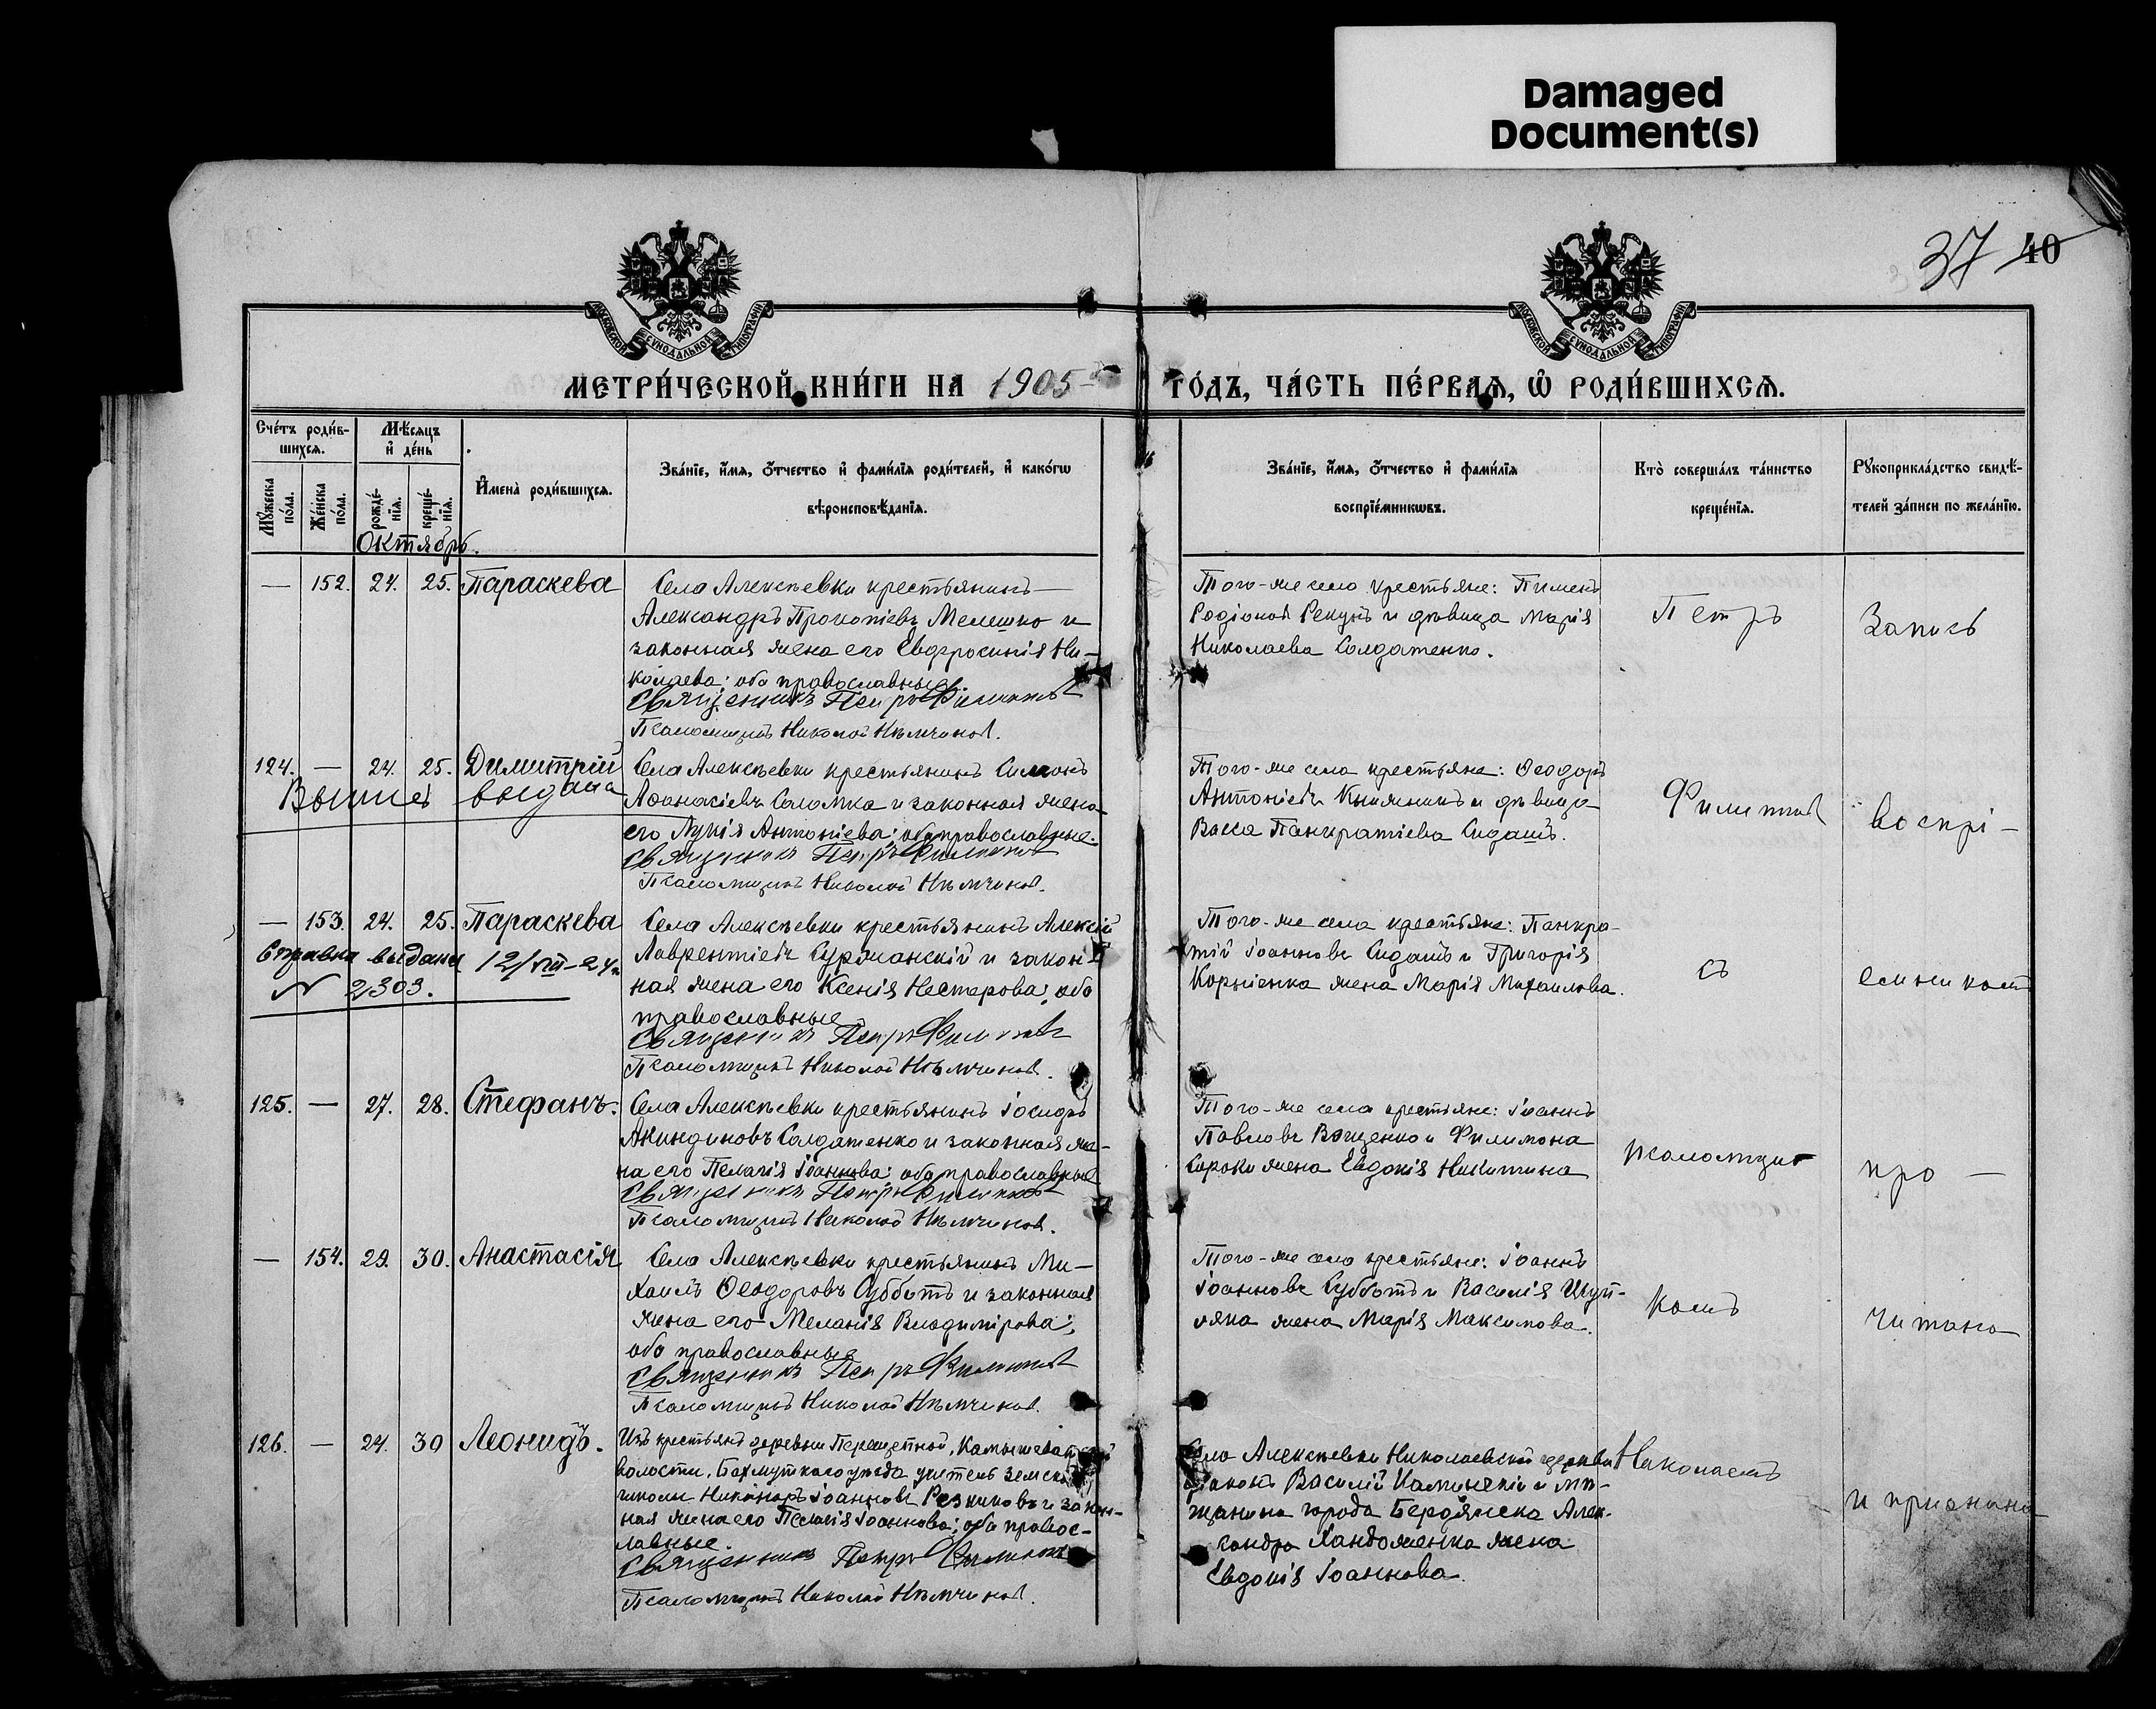 Damaged
Document(s)
37 40
МОСКОВСКОЙ СѴНОДАЛЬНОЙ ТИПОГРАФІИ
МОСКОВСКОЙ СѴНОДАЛЬНОЙ ТИПОГРАФІИ
МЕТРИ́ЧЕСКОЙ КНИ́ГИ НА 1905
ГО́ДЪ, ЧА́СТЬ ПЕ́РВАѦ, Ѡ РОДИ́ВШИХСѦ.
Сче́тъ роди́в-
шихся.
Мѣ́сяцъ
и де́нь
Мꙋ́жеска по́ла.
Же́нска по́ла.
рожде́-нїя.
креще́-нїя.
Имена̀ роди́вшихся.
Зва́нїе, и́мя, ѻ́тчество и фами́лїя роди́телей, и како́гѡ
вѣроисповѣ́данїя.
Зва́нїе, и́мя, ѻ́тчество и фами́лїя
воспрїе́мникѡвъ.
Кто̀ соверша́лъ та́инство
креще́нїя.
Рꙋкоприкла́дство свидѣ́-
телей за́писи по жела́нїю.
Октябрь.
— 152. 24. 25. Параскева
Села Алексѣевки крестьянинъ
Александръ Прокопіевъ Мелешко и
законная жена его Евфросинія Ни-
колаева; оба православные.
Священникъ Петръ Филиповъ
Псаломщикъ Николай Нѣмчиновъ.
Того-же села крестьяне: Пименъ
Родіоновъ Рекунъ и дѣвица Марія
Николаева Солдатенко.
Петръ
Запись
124. — 24. 25. Димитрій
выдана
Села Алексѣевки крестьянинъ Симонъ
Аѳанасіевъ Соломка и законная жена
его Лукія Антоніева; оба православные.
Священникъ Петръ Филиповъ
Псаломщикъ Николай Нѣмчиновъ.
Того-же села крестьяне: Ѳеодоръ
Антоніевъ Княжникъ и дѣвица
Васса Панкратіева Сидашъ.
Филиповъ
воспрі-
— 153. 24. 25. Параскева
Справка выдана 12/VIII-24
N 2303.
Села Алексѣевки крестьянинъ Алексій
Лаврентіевъ Суржанскій и закон-
ная жена его Ксенія Нестерова; оба
православные
Священникъ Петръ Филиповъ
Псаломщикъ Николай Нѣмчиновъ.
Того-же села крестьяне: Панкра-
тій Іоанновъ Сидашъ и Григорія
Корніенка жена Марія Михаилова.
съ
емникомъ
125. — 27. 28. Стефанъ.
Села Алексѣевки крестьянинъ Іосифъ
Акиндиновъ Солдатенко и законная же-
на его Пелагія Іоаннова; оба православные
Священникъ Петръ Филиповъ
Псаломщикъ Николай Нѣмчиновъ.
Того-же села крестьяне: Іоаннъ
Павловъ Ващенко и Филимона
Сороки жена Евдокія Никитина
псаломщи-
про-
— 154. 29. 30. Анастасія
Села Алексѣевки крестьянинъ Ми-
хаилъ Ѳеодоровъ Субботъ и законная
жена его Меланія Владимірова;
оба православные
Священникъ Петръ Филиповъ
Псаломщикъ Николай Нѣмчиновъ.
Того-же села крестьяне: Іоаннъ
Іоанновъ Субботъ и Василія
жена Марія Максимова.
комъ
читана
126. — 24. 30 Леонидъ.
Изъ крестьянъ деревни Перещепной, Камышевахской
волости, Бахмутскаго уѣзда учитель земской
школы Никаноръ Іоанновъ Резниковъ и закон-
ная жена его Пелагія Іоаннова; оба правос-
лавные.
Священникъ Петръ Филиповъ
Псаломщикъ Николай Нѣмчиновъ.
Села Алексѣевки Николаевской церкви
діаконъ Василій Каминскій и мѣ-
щанина города Бердянска Алек-
сандра Хандоженка жена
Евдокія Іоаннова.
Николаемъ
и признана